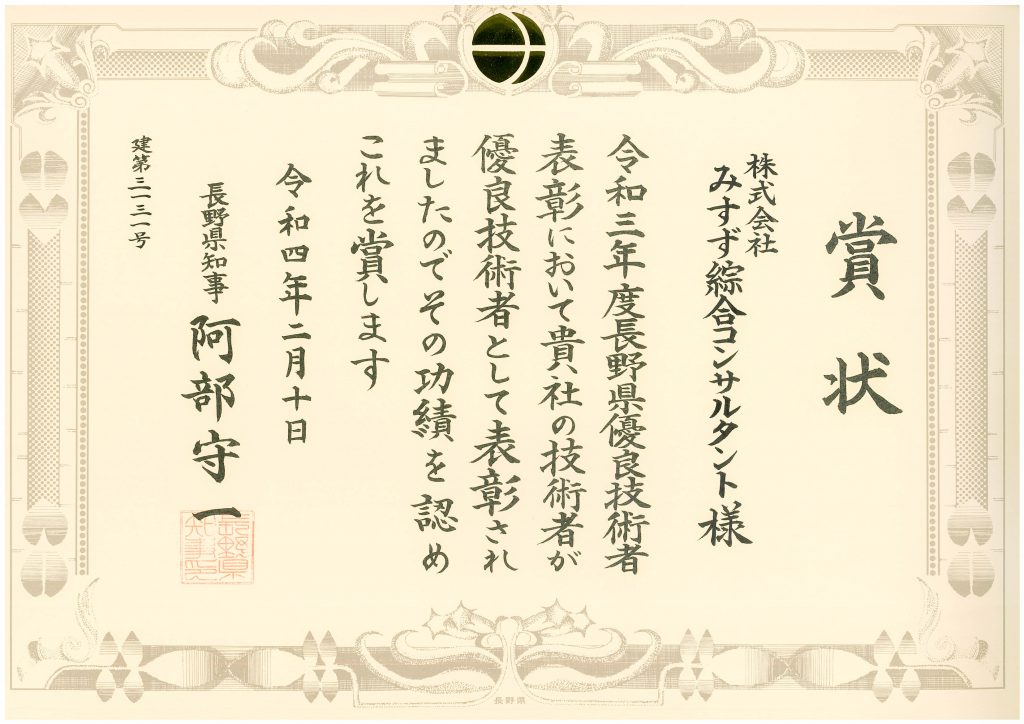 賞状
株式会社
みすず綜合コンサルタント様
令和三年度長野県優良技術者
表彰において貴社の技術者が
優良技術者として表彰され
ましたのでその功績を認め
これを賞します
令和四年二月十日
長野県知事 阿部守一
建第三一三一号
長野県知事之印
長野県